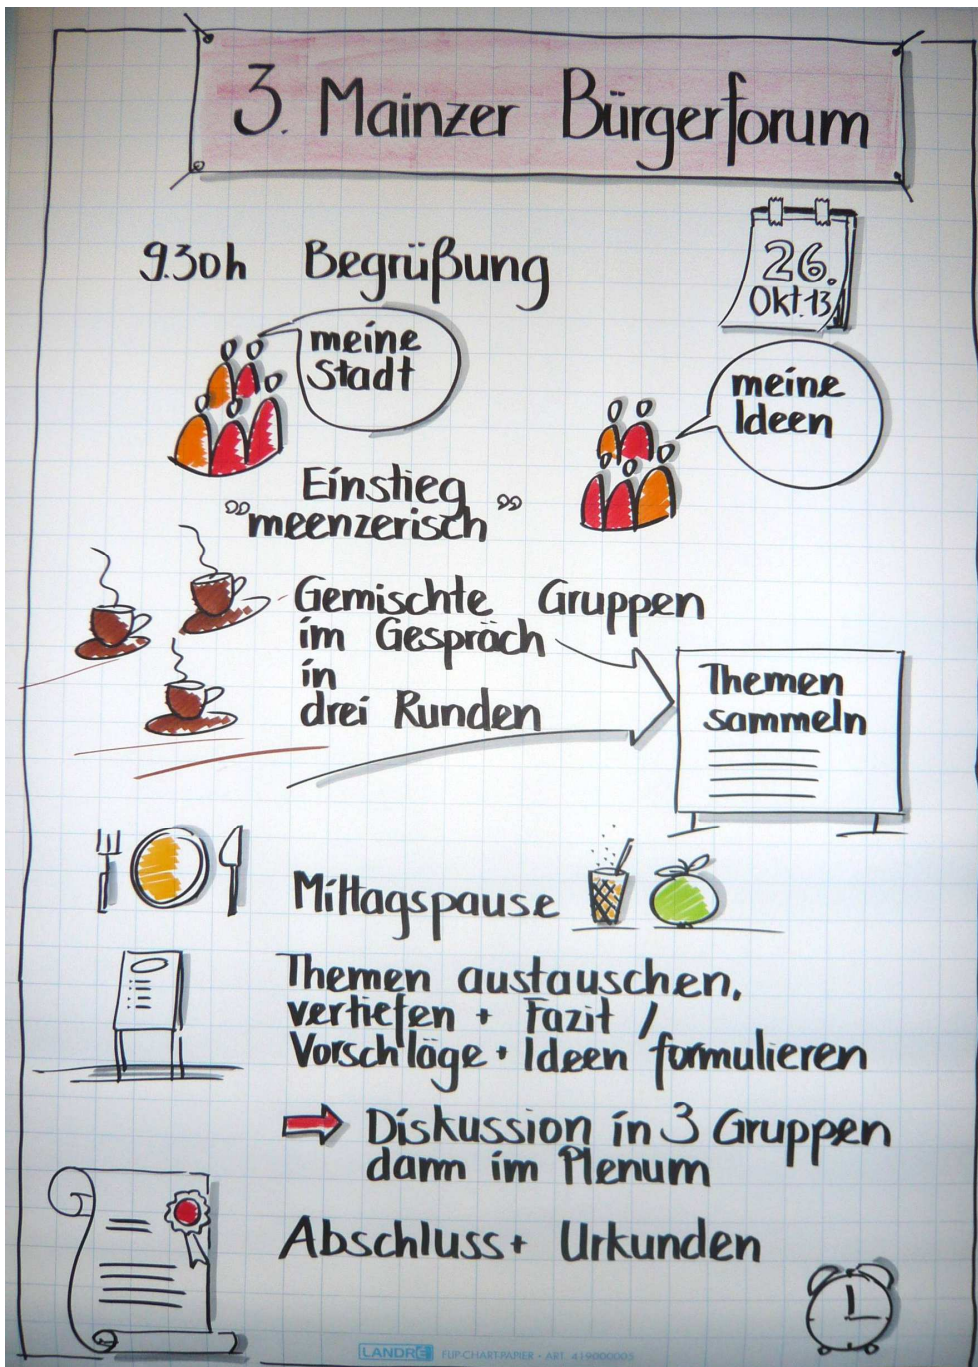 3. Mainzer Bürgerforum
9.30h Begrüßung
26.
Okt.13
meine
Stadt
meine
Ideen
Einstieg
"meenzerisch"
Gemischte Gruppen
im Gespräch
in
drei Runden
Themen
sammeln
Mittagspause
Themen austauschen,
vertiefen + Fazit /
Vorschläge + Ideen formulieren
Diskussion in 3 Gruppen
dann im Plenum
Abschluss + Urkunden
LANDRÉ FLIP-CHART-PAPIER • ART. 419000005